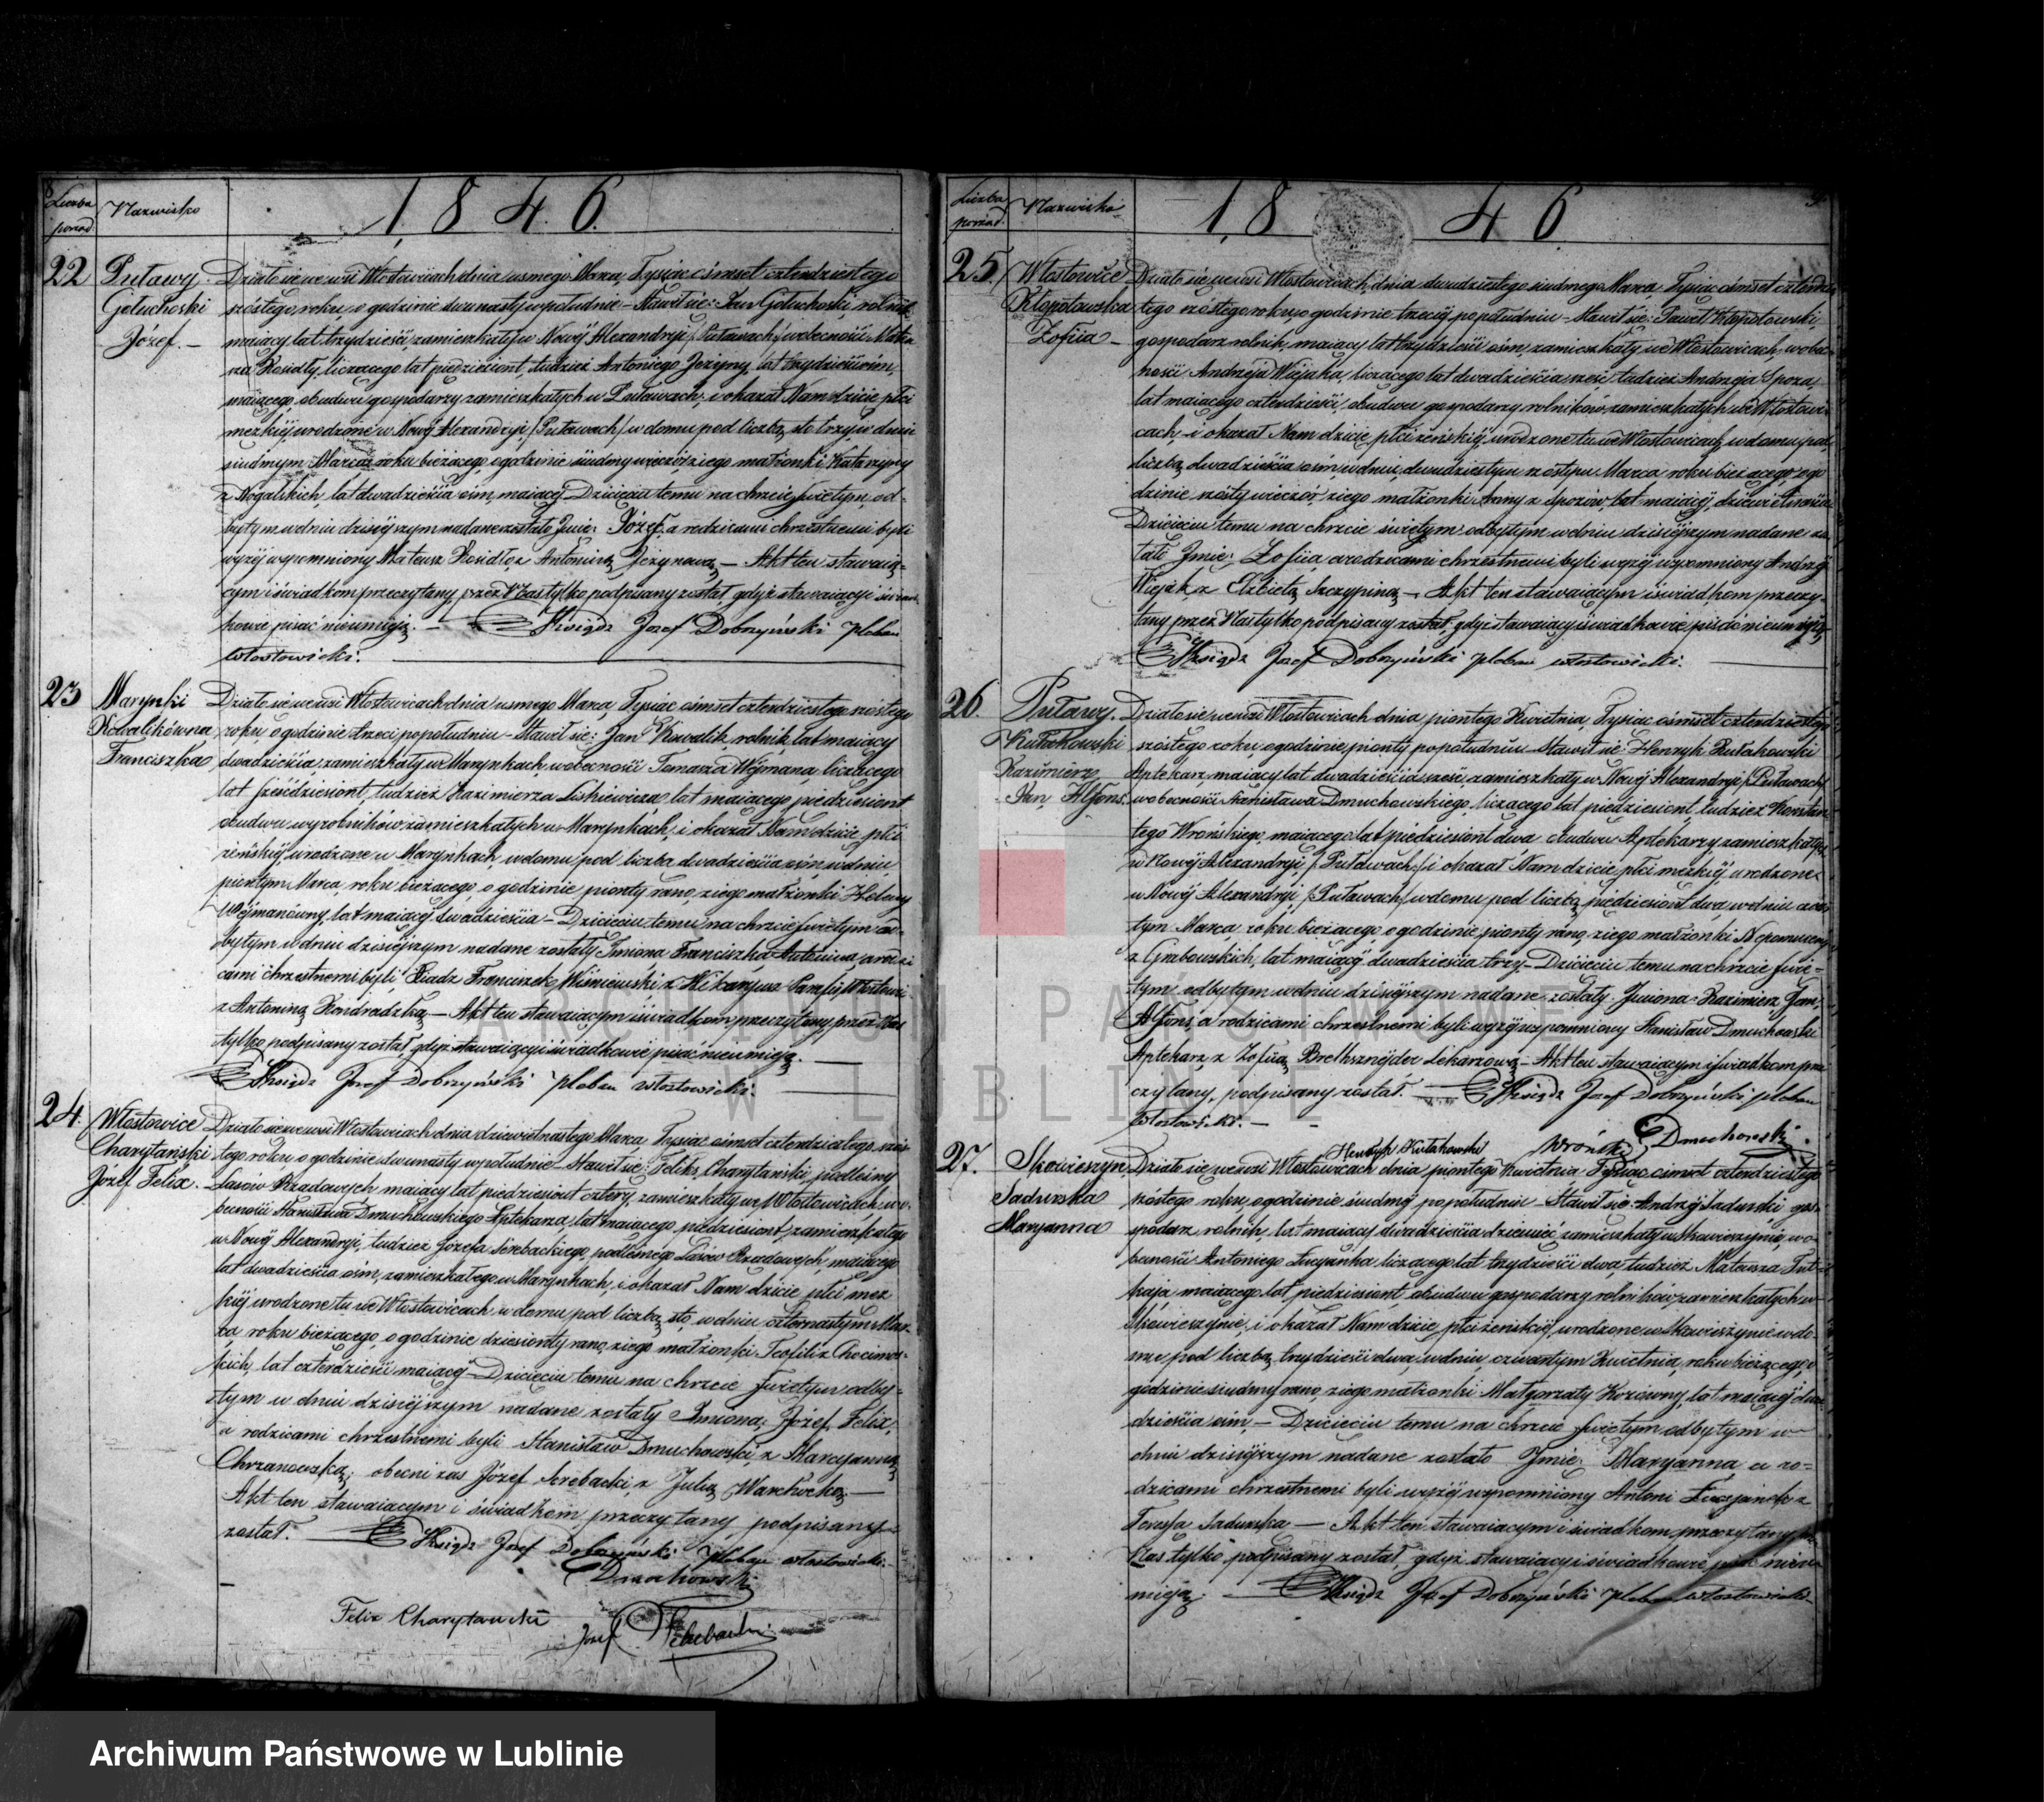 Liczba porząd. Nazwisko 1846.
22 Puławy. Gołuchoski Józef. –
Działo się we wsi Włostowicach dnia usmego Marca, Tysiąc ośmset czterdziestego
szóstego roku, o godzinie dwunasty w południe – Stawił sie: Jan Gołuchoski, rolnik
maiący lat trzydzieści, zamieszkały w Nowy Alexandryi /Puławach/ w obecności Mateu-
sza Kosidły, liczącego lat piędziesiont, tudzież Antoniego Jeżyny, lat trzydzieści ośm,
maiącego, obudwu gospodarzy zamieszkałych w Puławach; i okazał Nam dziecie płci
mezkiéj urodzone w Nowy Alexandryi /Puławach/ w domu pod liczbą sto trzy, w dniu
siudmym Marca roku bieżącego o godzinie siudmy wieczór, z iego małżonki Katarzyny
z Nogalskich, lat dwadzieścia ośm, maiącej. Dziecieciu temu na chrzcie świętym, od-
bytym w dniu dzisiéjszym nadane zostało Imie: Józef, a rodzicami chrzestnemi byli
wyżéj wspomniony Mateusz Kosidło z Antoniną Jeżynową – Akt ten stawaią-
cym i świadkom przeczytany, przez Nas tylko podpisany został, gdyż stawaiący i świad-
kowie pisać nieumieją. – Ksiądz Jozef Dobrzyński pleban
włostowicki.
23 Marynki Kowalikówna Franciszka
Działo się we wsi Włostowicach dnia usmego Marca, Tysiąc ośmset czterdziestego szóstego
roku, o godzinie trzeci popołudniu – Stawił sie: Jan Kowalik, rolnik, lat maiący
dwadzieścia, zamieszkały w Marynkach, w obecności Tomasza Wéjmana, liczącego
lat sześćdziesiont, tudzież Kazimierza Liskiewicza, lat maiącego piedziesiont
obudwu wyrobników zamieszkałych w Marynkach, i okazał Nam dziecie płci
żeńskiéj, urodzone w Marynkach, w domu pod liczbą dwadzieścia ośm, w dniu
piontym Marca roku bieżącego, o godzinie pionty rano, z iego małżonki Heleny
Wéjmanówny, lat maiący dwadzieścia – Dziecieciu temu na chrzcie świętym od-
bytym w dniu dzisiéjszym nadane zostały Imiona Franciszka Antonina, a rodzi-
cami chrzestnemi byli Xiadz Franciszek Wiśniewski, z Wikaryusz Parafii Włostowi-
z Antoniną Kondradzką – Akt ten stawaiącym i świadkom przeczytany, przez Nas
tylko podpisany został, gdyż stawaiący i świadkowie pisać nieumieją. –
Ksiądz Jozef Dobrzyński pleban włostowicki.
24. Włostowice Charytański Józef Felix. –
Działo się we wsi Włostowicach dnia dziewietnastego Marca Tysiąc ośmset czterdziestego szós-
tego roku o godzinie dwunasty w południe – Stawił sie: Feliks Charytański, podleśny
Lasów Rządowych maiący lat piedziesiont cztery, zamieszkały w Włostowicach w o-
becności Stanisława Dmuchowskiego Aptekarza, lat maiącego piedziesiont, zamieszkałego
w Nowy Alexandryi, tudzież Józefa Serebackiego, podleśnego Lasów Rządowych, maiącego
lat dwadzieścia ośm, zamieszkałego w Marynkach, i okazał Nam dziecie płci mez-
kiéj urodzone tu we Włostowicach, w domu pod liczbą sto, w dniu czternastym Mar-
ca roku bieżącego, o godzinie dziesionty rano, z iego małżonki Teofili z Chocimos-
kich, lat czterdzieści maiący – Dziecieciu temu na chrzcie świętym odby-
tym w dniu dzisiéjszym nadane zostały Imiona: Józef, Felix,
a rodzicami chrzestnemi byli Stanisław Dmuchowski, z Maryanną
Chrzanowską; obecni zas Józef Serebacki, z Julią Warchocką –
Akt ten stawaiącym i świadkom przeczytany podpisany
został. Ksiądz Jozef Dobrzyński pleban włostowicki.
Dmochowski
Felix Charytański
Jozef Serebacki
Liczba porząd. Nazwisko 1846
25. Włostowice Kłopotowska Zofiia –
Działo się we wsi Włostowicach, dnia dwudziestego siudmego Marca, Tysiąc ośmset czterdzies-
tego szóstego roku, o godzinie trzeciéj popołudniu – Stawił sie: Paweł Kłopotowski
gospodarz rolnik, maiący lat trzydzieści ośm, zamieszkały we Włostowicach, w obec-
ności Andrzéja Wiejaka, liczącego lat dwadzieścia sześć, tudzież Andrzeja Spoza,
lat maiącego czterdzieści, obudwu gospodarzy rolników, zamieszkałych we Włostowi-
cach, i okazał Nam dziecie płci żeńskiéj, urodzone tu we Włostowicach, w domu pod
liczbą dwadzieścia ośm, w dniu dwudziestym szóstym Marca roku bieżącego, o go-
dzinie szósty wieczór z iego małżonki Anny z Spozów, lat maiąciéj, dziewietnaście
Dziecieciu temu na chrzcie świetym odbytym w dniu dzisiéjszym nadane zo-
stało Imie: Zofiia, a rodzicami chrzestnemi byli wyżéj wspomniony Andrzéj
Wiejak, z Elżbietą Szczypiną – Akt ten stawaiącym i świadkom przeczy-
tany przez Nas tylko podpisany został, gdyż stawaiący i świadkowie pisać nieumieją.
Ksiądz Jozef Dobrzyński pleban włostowicki.
26. Puławy. Kułakowski Kazimierz Jan Alfons.
Działo się we wsi Włostowicach dnia piontego Kwietnia, Tysiąc ośmset czterdziestego
szóstego roku, o godzinie pionty popołudniu – Stawił sie Henryk Kułakowski
Aptekarz, maiący lat dwadzieścia sześć, zamieszkały w Nowy Alexandryi /Puławach/
w obecności Stanisława Dmuchowskiego, liczącego lat piedziesiont, tudzież Konstan-
tego Wrońskiego, maiącego lat piedziesiont dwa, obudwu Aptekarzy zamieszkałych
w Nowy Alexandryi, /Puławach/ i okazał Nam dziecie płci mezkiéj, urodzone
w Nowy Alexandryi, /Puławach/ w domu pod liczbą piedziesiont dwa, w dniu
tym Marca, roku bieżącego o godzinie pionty rano, z iego małżonki Nepomuceny
z Grabowskich, lat maiącéj dwadzieścia trzy – Dziecieciu temu na chrzcie świę-
tym odbytym w dniu dzisiéjszym nadane zostały Imiona: Kazimierz Jan
Alfons, a rodzicami chrzestnemi byli wyżéj wspomniony Stanisław Dmuchowski
Aptekarz, z Zofiią Brethsznejder Lekarzową – Akt ten stawaiącym i świadkom prze-
czytany, podpisany został. – Ksiądz Jozef Dobrzyński pleban
włostowicki. –
Henryk Kułakowski Wroński Dmuchowski.
27. Skowieszyn Sadurska Maryanna
Działo się we wsi Włostowicach dnia piontego Kwietnia, Tysiąc ośmset czterdziestego
szóstego roku, o godzinie siudméj popołudniu – Stawił sie Andrzéj Sadurski gos-
podarz rolnik, lat maiący dwadzieścia dziewięć, zamieszkały w Skowieszynie, w o-
becności Antoniego Łucjanka liczącego lat trzydzieści dwa, tudzież Mateusza Fut-
kaja maiącego lat piedziesiont, obudwu gospodarzy rolników, zamieszkałych w
Skowieszynie, i okazał Nam dziecie płci żeńskiéj, urodzone w Skowieszynie w do-
mu pod liczbą trzydzieści dwa, w dniu czwartym Kwietnia, roku bieżącego, o
godzinie siudmy rano, z iego małżonki Małgorzaty Koziowny, lat maiącéj dwa-
dzieścia ośm, – Dziecieciu temu na chrzcie świętym odbytym w
dniu dzisiéjszym nadane zostało Imie: Maryanna a ro-
dzicami chrzestnemi byli wyżéj wspomniony Antoni Łucjanek z
Teressą Sadurską – Akt ten stawaiącym i świadkom przeczytany przez
Nas tylko podpisany został, gdyż stawaiący i świadkowie pisać nieu-
mieją. – Ksiądz Jozef Dobrzyński pleban włostowicki.
ARCHIWUM PAŃSTWOWE
W LUBLINIE
Archiwum Państwowe w Lublinie